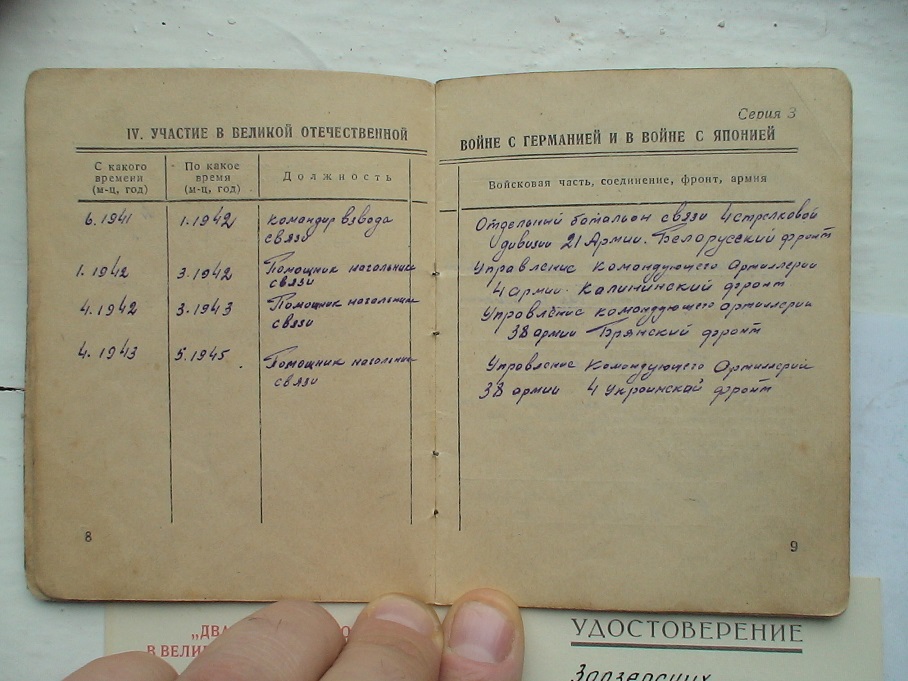 IV. УЧАСТИЕ В ВЕЛИКОЙ ОТЕЧЕСТВЕННОЙ
С какого времени (м-ц, год)
По какое время (м-ц, год)
Должность
6.1941 1.1942 командир взвода
связи
1.1942 3.1942 Помощник начальника
связи
4.1942 3.1943 Помощник начальника
связи
4.1943 5.1945 Помощник начальника
связи
8
Серия 3
ВОЙНЕ С ГЕРМАНИЕЙ И В ВОЙНЕ С ЯПОНИЕЙ
Войсковая часть, соединение, фронт, армия
Отдельный баталион связи 4 стрелковой
дивизии 21 Армии. Белорусский фронт
Управление командующего Артиллерии
4 армии. Калининский фронт
Управление командующего артиллерии
38 армии Брянский фронт
Управление Командующего Артиллерий
38 армии 4 Украинской фронт
9
„ДВА
В ВЕЛИ
УДОСТОВЕРЕНИЕ